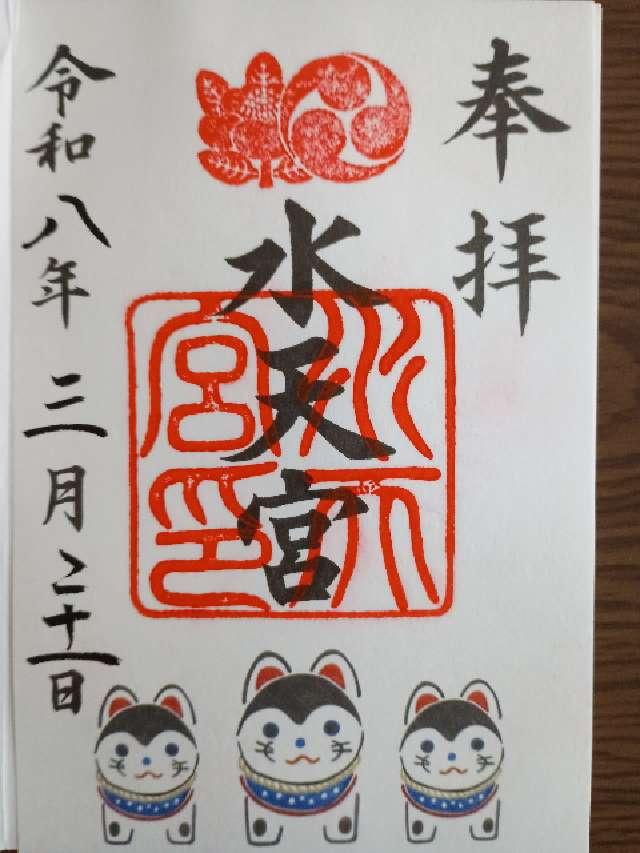 奉拝
水天宮
水天宮印
令和八年三月二十一日